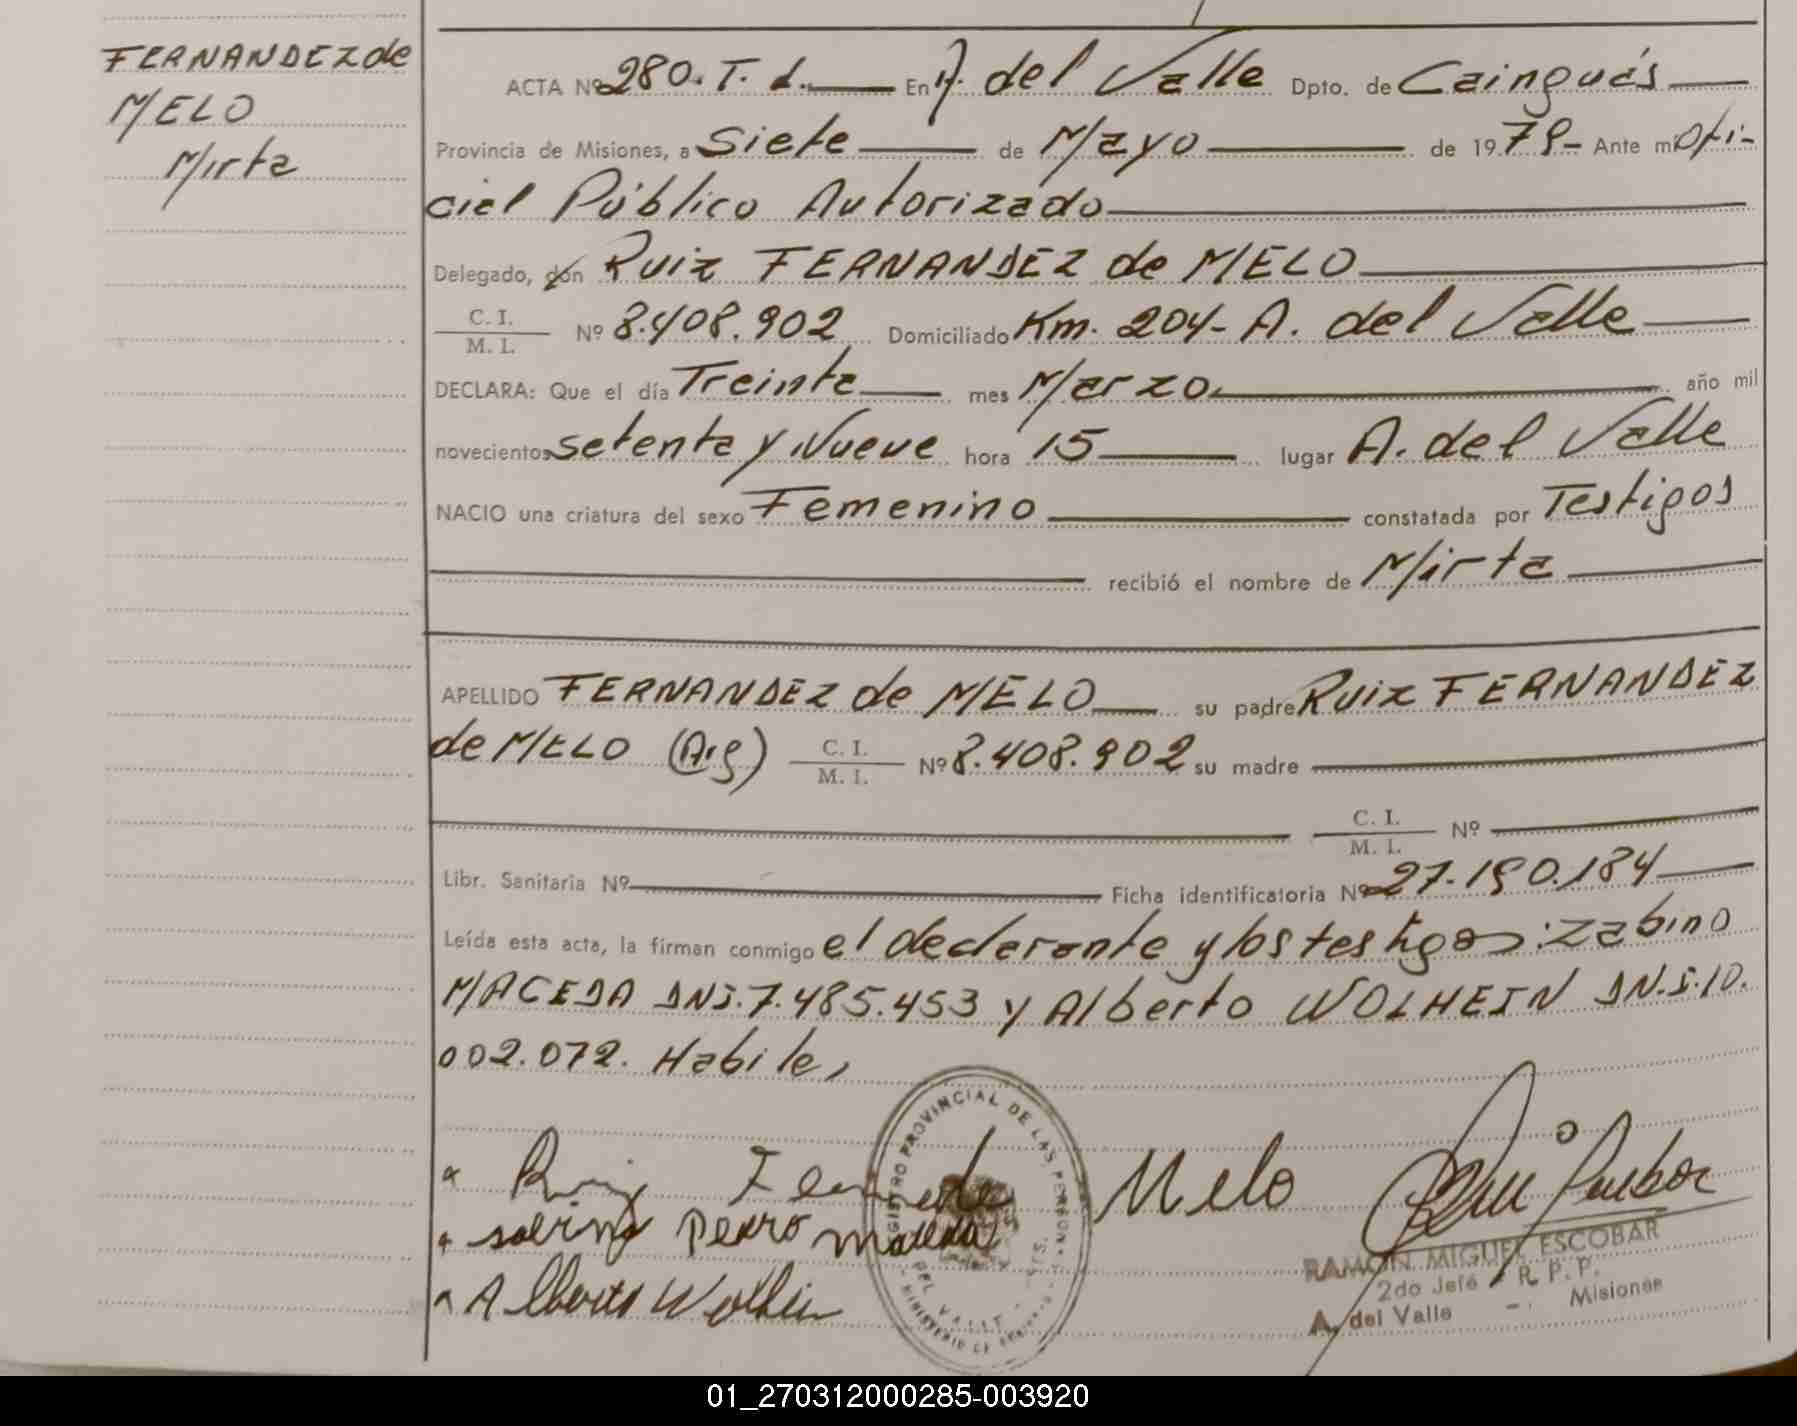 FERNANDEZ de
MELO
Mirta
ACTA Nº 280. T. 1. En A. del Valle Dpto. de Cainguás
Provincia de Misiones, a Siete de Mayo de 1979- Ante mi Ofi-
cial Público Autorizado
Delegado, don Ruiz FERNANDEZ de MELO
C. I. / M. I. Nº 8.408.902 Domiciliado Km. 204- A. del Valle
DECLARA: Que el día Treinta mes Marzo año mil
novecientos setenta y Nueve hora 15 lugar A. del Valle
NACIO una criatura del sexo Femenino constatada por Testigos
recibió el nombre de Mirta
APELLIDO FERNANDEZ de MELO su padre Ruiz FERNANDEZ
de MELO (Arg) C. I. / M. I. Nº 8.408.902 su madre
C. I. / M. I. Nº
Libr. Sanitaria Nº Ficha identificatoria Nº 27.190.184
Leída esta acta, la firman conmigo el declarante y los testigos: Zabino
MACEDA DNI. 7.485.453 y Alberto WOLHEIN DN.I. 10.
002.072. Habile,
Ruiz Fernandes Melo
sabino Pedro maceda
Alberto Wolhein
REGISTRO PROVINCIAL DE LAS PERSONAS
DEL VALLE
RAMON MIGUEL ESCOBAR
2do Jefe R. P. P.
A. del Valle - Misiones
01_270312000285-003920